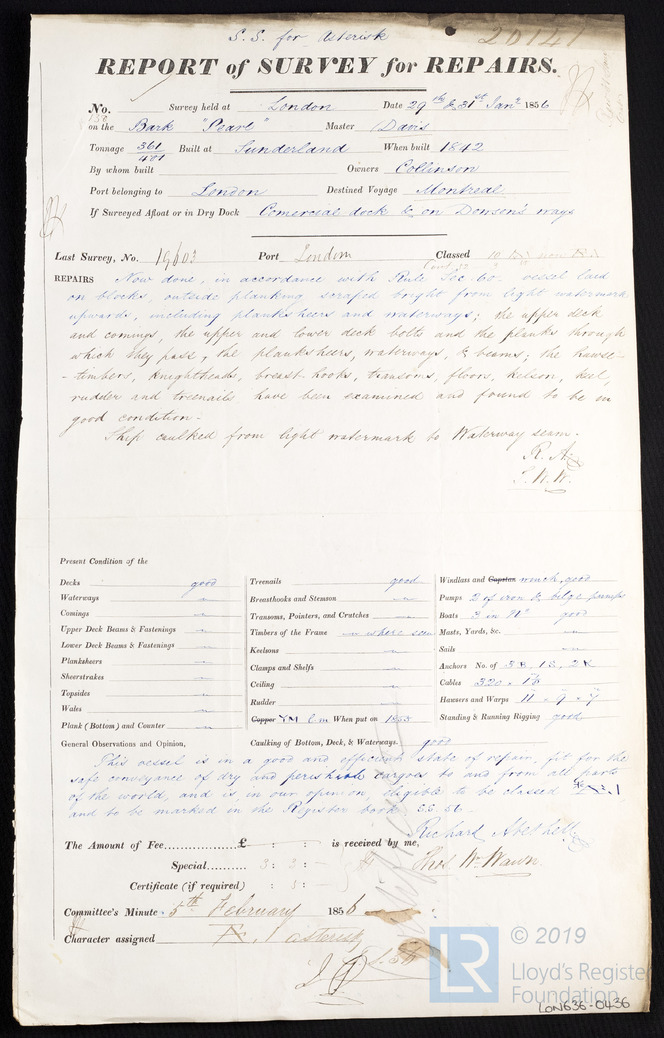 S. S. for Asterisk
20141
REPORT of SURVEY for REPAIRS.
No. Survey held at London Date 29th & 31st Jany 1856
on the Bark "Pearl" Master Davis
Tonnage 361/401 Built at Sunderland When built 1842
By whom built Owners Collinson
Port belonging to London Destined Voyage Montreal
If Surveyed Afloat or in Dry Dock Comercial dock & on Dowsen's ways
Last Survey, No. 19603 Port London Classed
REPAIRS Now done, in accordance with Rule Sec 60. vessel laid
on blocks, outside planking scraped bright from light watermark
upwards, including planksheers and waterways; the upper deck
and comings, the upper and lower deck bolts and the planks through
which they pass, the planksheers, waterways, & beams; the hawse-
-timbers, knightheads, breast-hooks, transoms, floors, kelson, keel,
rudder and treenails have been examined and found to be in
good condition.-
Ship caulked from light watermark to Waterway seam.
R. A.
T. W. W.
Present Condition of the
Decks good
Waterways "
Comings "
Upper Deck Beams & Fastenings "
Lower Deck Beams & Fastenings "
Planksheers "
Sheerstrakes "
Topsides "
Wales "
Plank (Bottom) and Counter "
Treenails good
Breasthooks and Stemson "
Transoms, Pointers, and Crutches "
Timbers of the Frame " where seen
Keelsons "
Clamps and Shelfs "
Ceiling "
Rudder "
Copper YM When put on 1855
Windlass and Capstan winch, good
Pumps 2 of iron & bilge pumps
Boats 3 in No good
Masts, Yards, &c. "
Sails "
Anchors No. of 3B, 1S, 2K
Cables 320
Hawsers and Warps 11 - 9 - 7
Standing & Running Rigging good
General Observations and Opinion, Caulking of Bottom, Deck, & Waterways. good
This vessel is in a good and efficient state of repair, fit for the
safe conveyance of dry and perishable cargoes to and from all parts
of the world, and is in our opinion, eligible to be classed
and to be marked in the Register book
Richard
The Amount of Fee £ : : is received by me,
Special 3 : 3 : - Thos Wm Wawn
Certificate (if required) : 5 : -
Committee's Minute 5th February 1856
Character assigned A. 1 asterisk
LR © 2019
Lloyd's Register
Foundation
LON636-0436